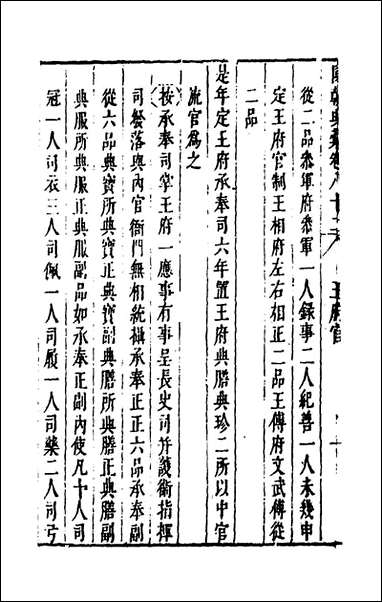 國朝典彙卷八十二 王府官
從二品參軍府參軍一人錄事二人紀善一人未幾申
定王府官制王相府左右相正二品王傅府文武傅從
二品
是年定王府承奉司六年置王府典膳典珍二所以中官
流官為之
按承奉司掌王府一應事有事呈長史司并護衛指揮
司發落與內官衙門無相統攝承奉正正六品承奉副
從六品典寶所典寶正典寶副典膳所典膳正典膳副
典服所典服正典服副品如承奉正副內使凡十人司
冠一人司衣三人司佩一人司履一人司藥二人司弓